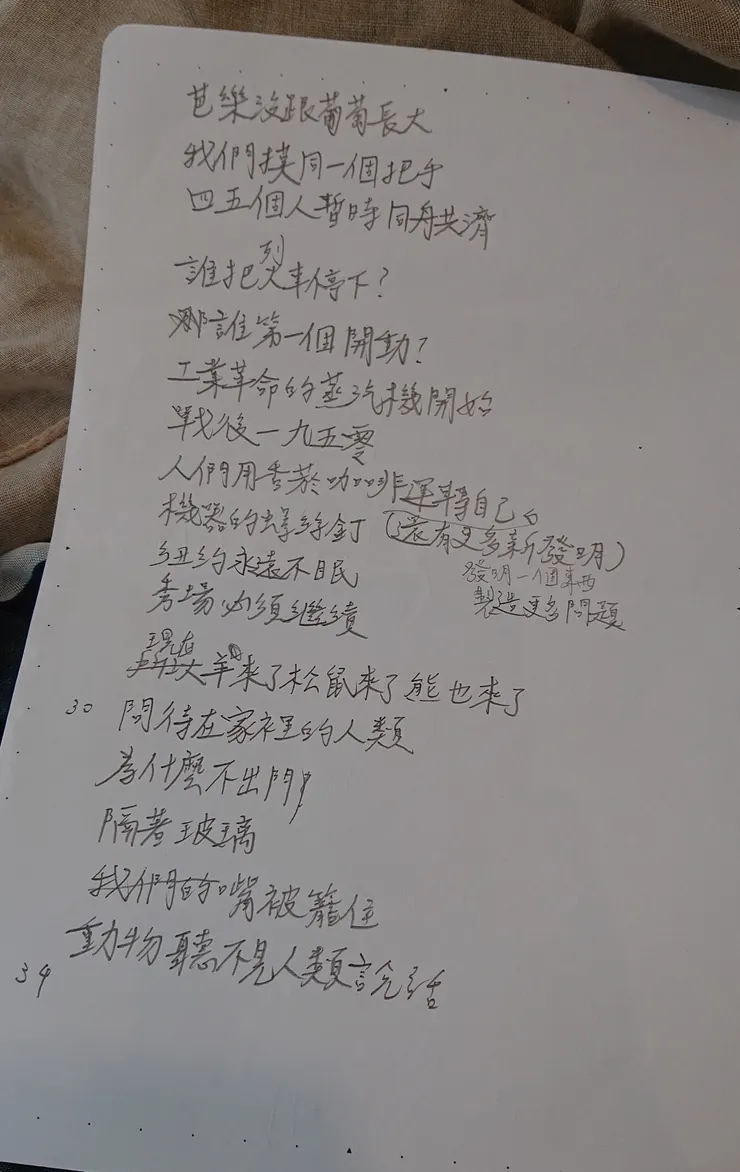 芭樂沒跟葡萄長大
我們摸同一個把手
四五個人暫時同舟共濟
誰把列車停下?
誰第一個開動?
工業革命的蒸汽機開始
戰後一九五零
人們用香菸咖啡運轉自己
機器的螺絲釘(還有更多新發明)
發明一個東西
製造更多問題
紐約永遠不眠
秀場必須繼續
現在羊來了松鼠來了熊也來了
30 問待在家裡的人類
為什麼不出門
隔著玻璃
我們的嘴被籠住
34 動物聽不見人類說話